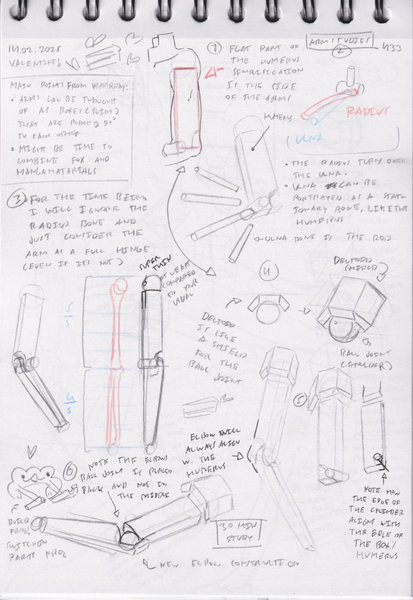 14.02.2025
VALENTINES
MAIN POINTS FROM YESTERDAY:
• ARMS CAN BE THOUGHT
OF AS BOXES (SLIM)
THAT ARE 90°
TO EACH OTHER
• MIGHT BE TIME TO
COMBINE FOX AND
MANGAMATERIALS
① FLAT PART OF
THE HUMERUS
SIMPLIFICATION
IS THE SIDE
OF THE ARMS
ARM STUDIES
②
#33
RADIUS
ULNA
HUMERUS
• THE RADIUS TURNS OVER
THE ULNA.
• ULNA CAN BE
PORTRAYED AS A STAT
IONARY BONE, LIKE THE
HUMERUS
ULNA BONE IS THE ROD
③ FOR THE TIME BEING
I WILL IGNORE THE
RADIUS BONE AND
JUST CONSIDER THE
ARM AS A FULL HINGE
(EVEN IF ITS NOT)
SUPER THIN
AT LEAST
COMPARED
TO THE
USUAL
④
DELTOID
(SHIELD)
BALL JOINT
(SHOULDER)
DELTOID
IS LIKE
A SHIELD
FOR THE
BALL JOINT
⑤
ELBOW WILL
ALWAYS ALIGN
W. THE
HUMERUS
NOTE HOW
THE EDGE OF
THE CYLINDER
ALIGN WITH
THE EDGE OF
THE BOX/
HUMERUS
⑥ NOTE THE ELBOW
BALL JOINT IS PLACED
BACK AND NOT IN
THE MIDDLE
BUILD
FROG
SWITCHIN
PARTS FROG
30 MIN
STUDY
NEW ELBOW CONSTRUCTION